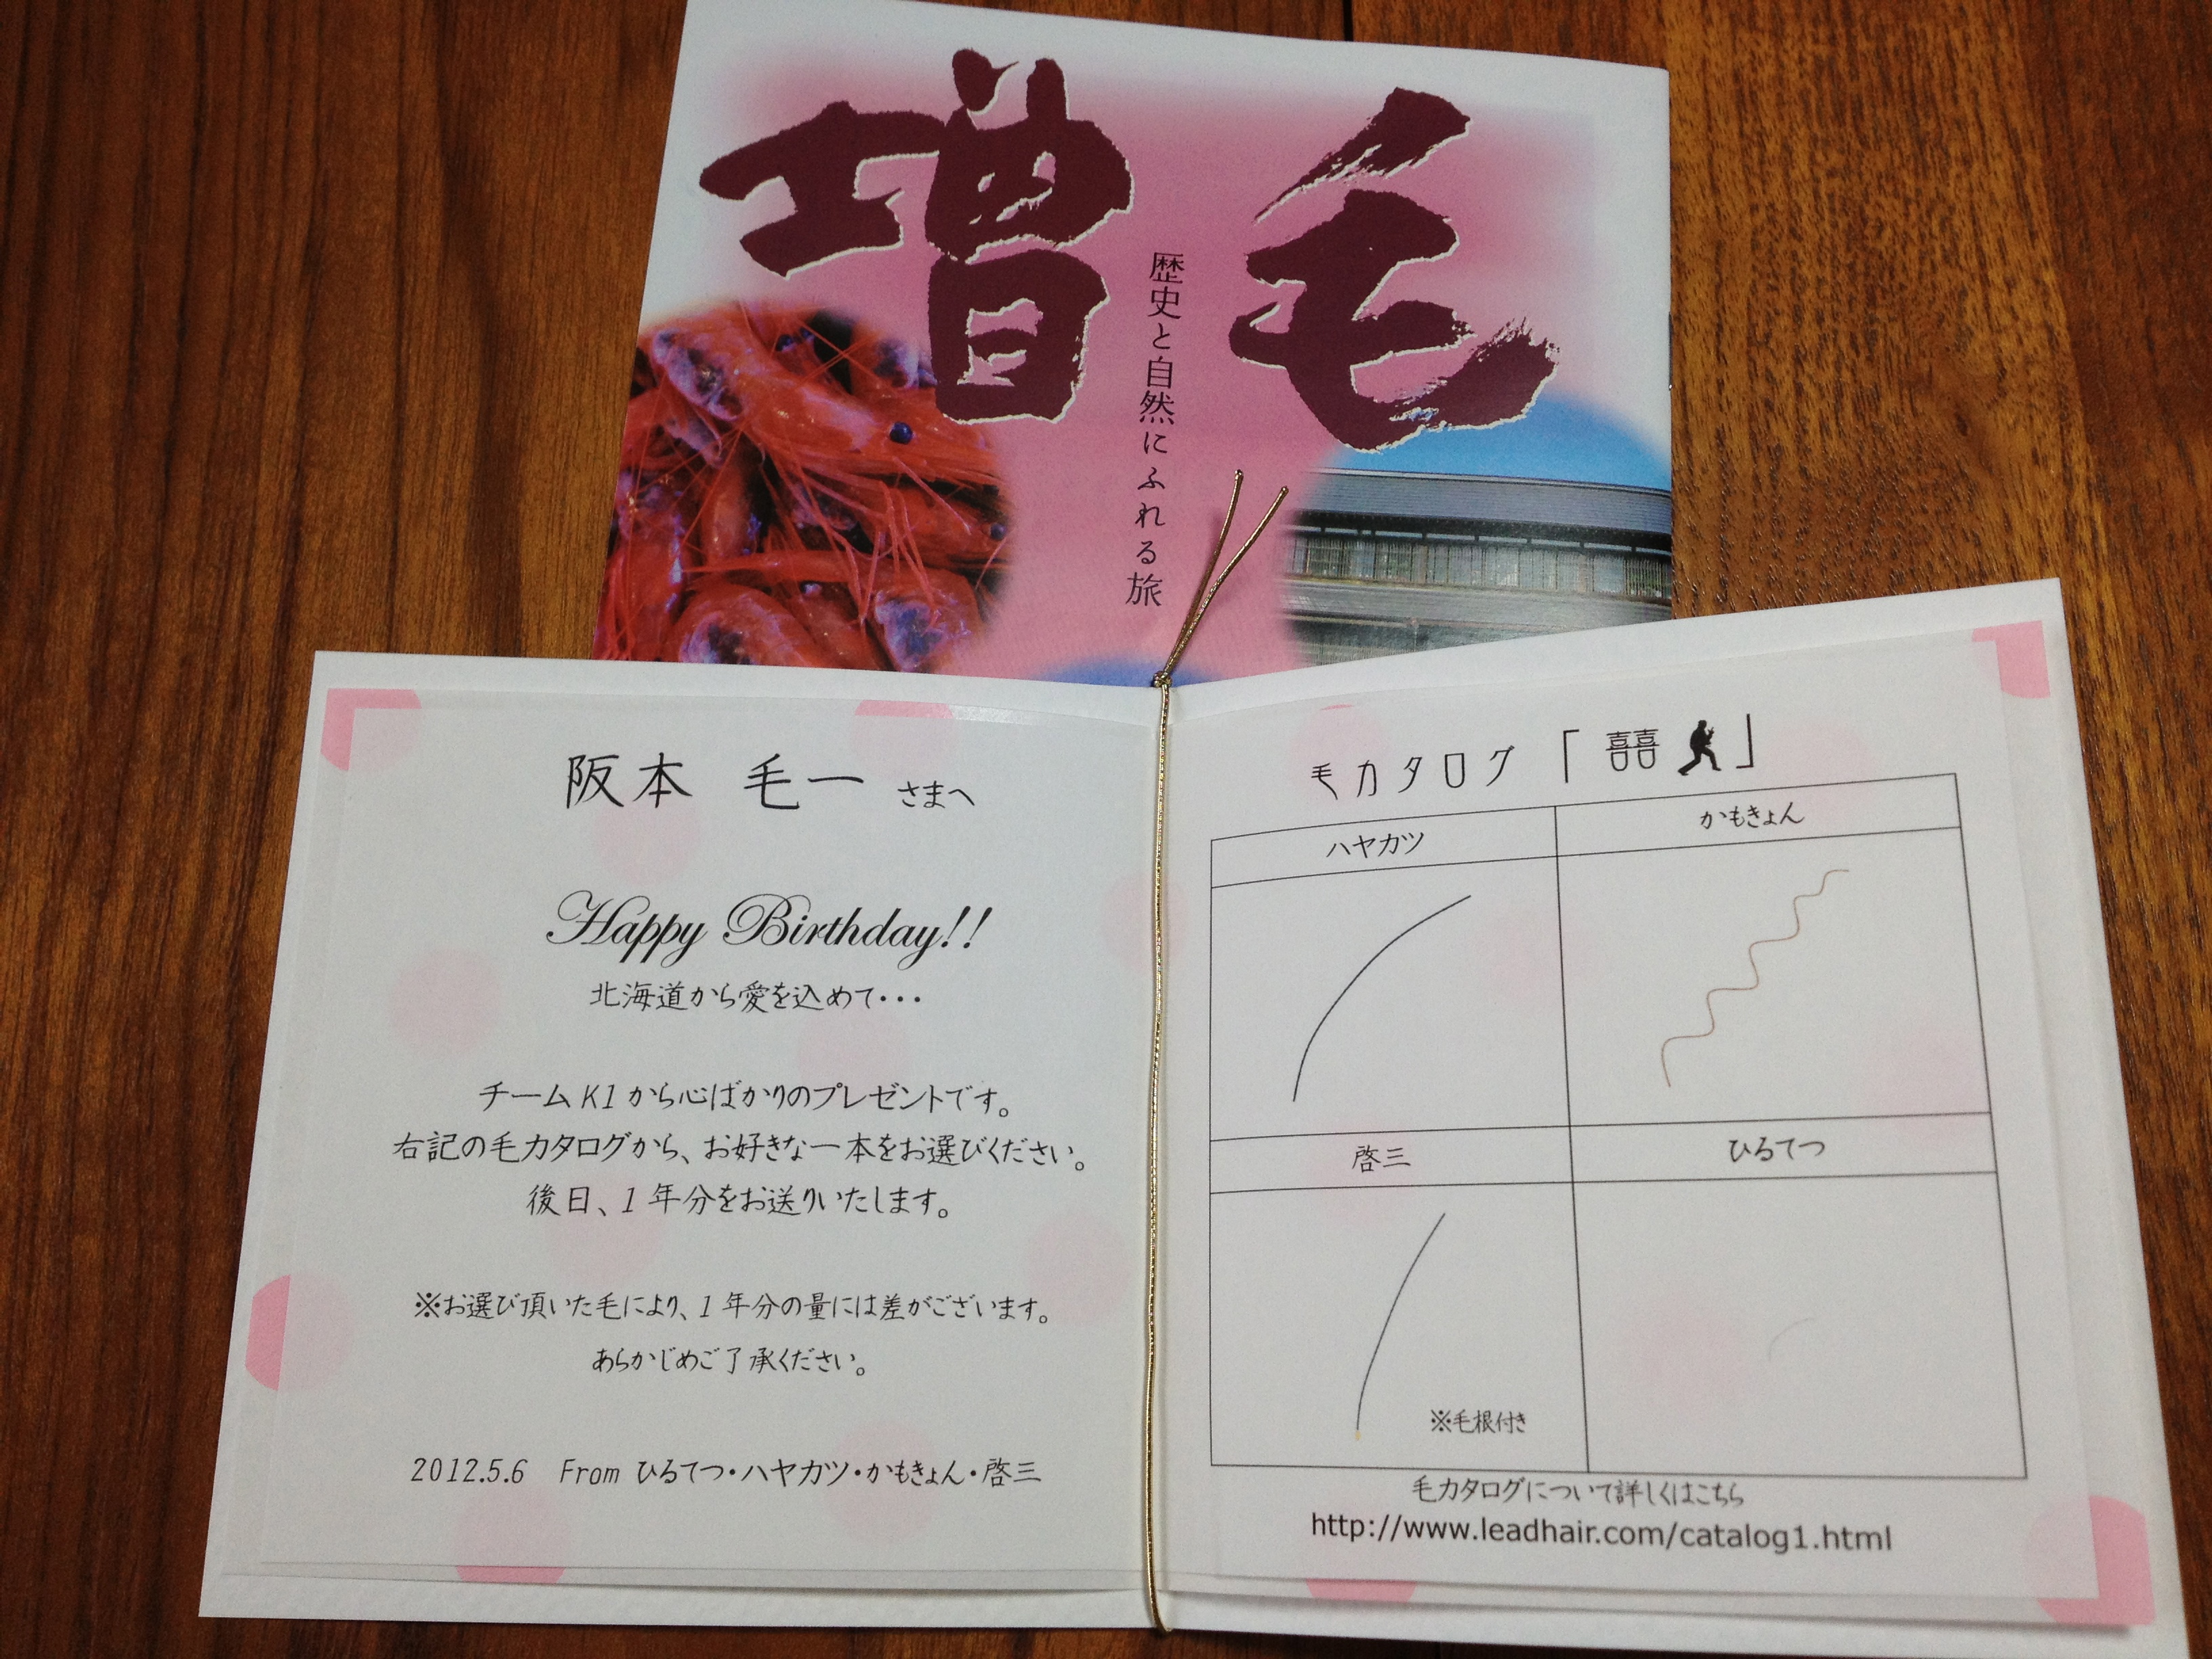 増毛
歴史と自然にふれる旅
阪本 毛一 さまへ
Happy Birthday!!
北海道から愛を込めて・・・
チームK1から心ばかりのプレゼントです。
右記の毛カタログから、お好きな一本をお選びください。
後日、1年分をお送りいたします。
※お選び頂いた毛により、1年分の量には差がございます。
あらかじめご了承ください。
2012.5.6 From ひるてつ・ハヤカツ・かもきょん・啓三
毛カタログ「囍」
ハヤカツ
かもきょん
啓三
ひるてつ
※毛根付き
毛カタログについて詳しくはこちら
http://www.leadhair.com/catalog1.html